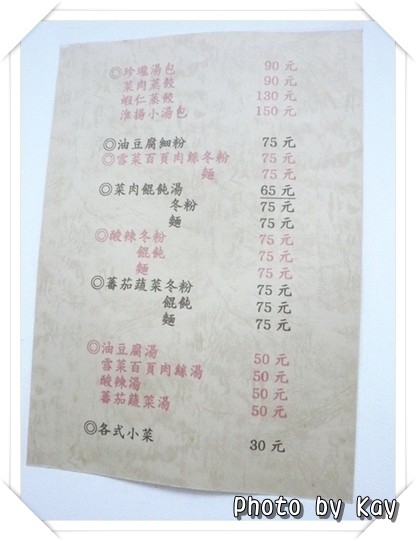 ◎珍瓏湯包 90元
菜肉蒸餃 90元
蝦仁蒸餃 130元
淮揚小湯包 150元
◎油豆腐細粉 75元
◎雪菜百頁肉絲冬粉 75元
麵 75元
◎菜肉餛飩湯 65元
冬粉 75元
麵 75元
◎酸辣冬粉 75元
餛飩 75元
麵 75元
◎蕃茄蔬菜冬粉 75元
餛飩 75元
麵 75元
◎油豆腐湯 50元
雪菜百頁肉絲湯 50元
酸辣湯 50元
蕃茄蔬菜湯 50元
◎各式小菜 30元
Photo by Kay